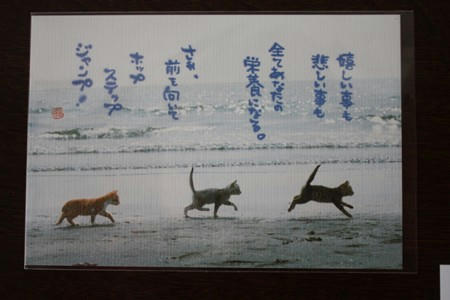 嬉しい事も
悲しい事も
全てあなたの
栄養になる。
さぁ、
前を向いて
ホップ
ステップ
ジャンプ!